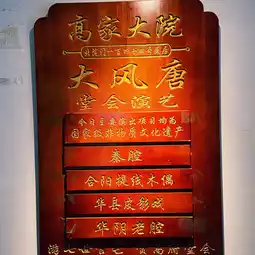 高家大院
大风唐
堂会演艺
今日主要演出项目均为
国家级非物质文化遗产
秦腔
合阳提线木偶
华县皮影戏
华阴老腔